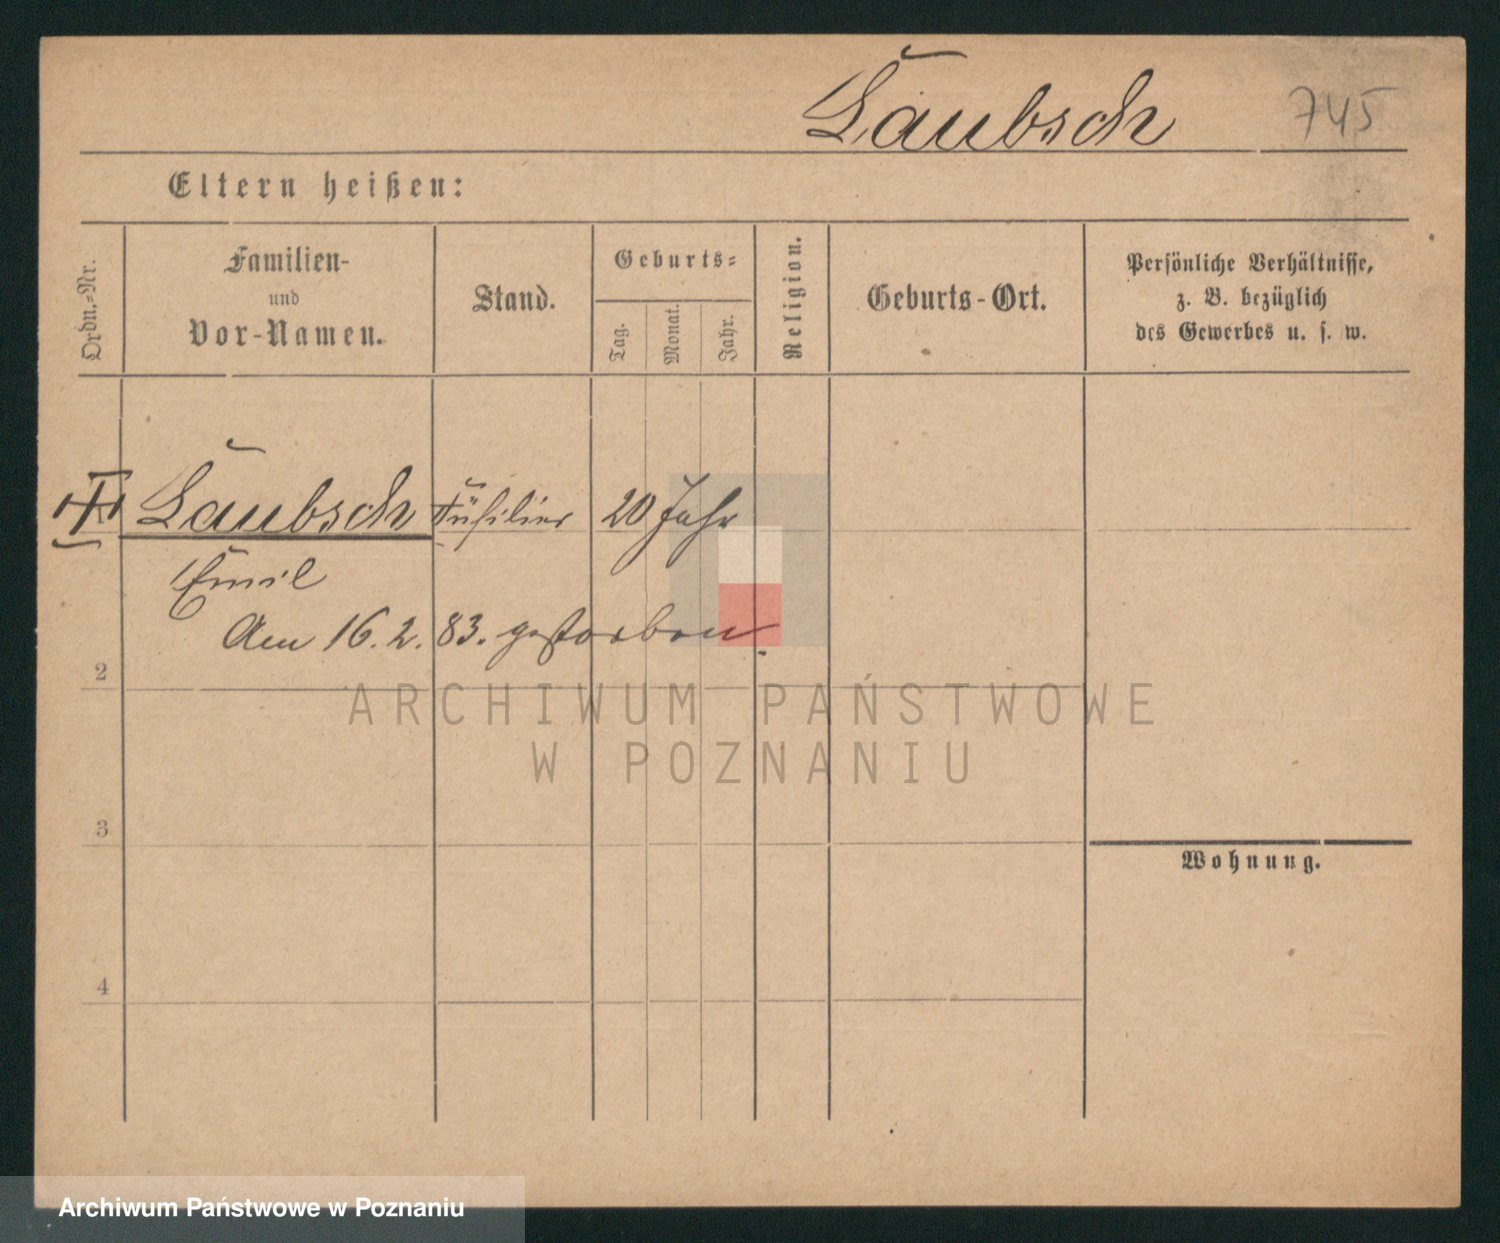 Läubsch 745
Eltern heißen:
Ordn.-Nr.
Familien-
und
Vor-Namen.
Stand.
Geburts-
Tag.
Monat.
Jahr.
Religion.
Geburts-Ort.
Persönliche Verhältnisse,
z. B. bezüglich
des Gewerbes u. s. w.
Läubsch Füsilier 20 Jahr
Emil
Am 16. 2. 83. gestorben.
2
ARCHIWUM PAŃSTWOWE
W POZNANIU
3
Wohnung.
4
Archiwum Państwowe w Poznaniu